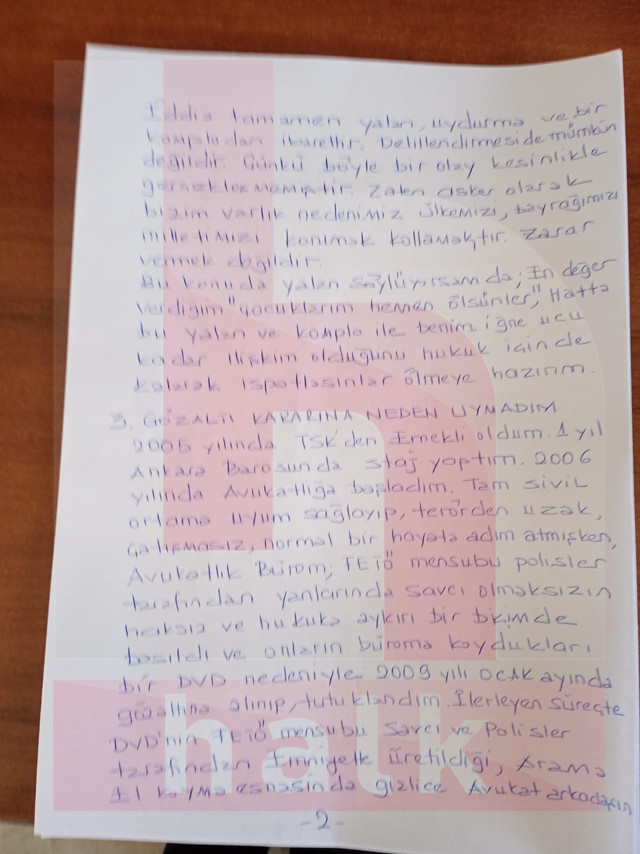 İddia tamamen yalan, uydurma ve bir
komplodan ibarettir. Delillendirmesi de mümkün
değildir. Çünkü böyle bir olay kesinlikle
gerçekleşmemiştir. Zaten asker olarak
bizim varlık nedenimiz ülkemizi, bayrağımızı
milletimizi korumak kollamaktır. Zarar
vermek değildir.
Bu konuda yalan söylüyorsam da; En değer
verdiğim "çocuklarım hemen ölsünler," Hatta
bu yalan ve komplo ile benim iğne ucu
kadar ilişkim olduğunu hukuk içinde
kalarak ispatlasınlar ölmeye hazırım.
3. GÖZALTI KARARINA NEDEN UYMADIM
2005 yılında TSK'den Emekli oldum. 1 yıl
Ankara Barosunda staj yaptım. 2006
yılında Avukatlığa başladım. Tam sivil
ortama uyum sağlayıp, terörden uzak,
çatışmasız, normal bir hayata adım atmışken,
Avukatlık Bürom; FETÖ mensubu polisler
tarafından yanlarında savcı olmaksızın
haksız ve hukuka aykırı bir biçimde
basıldı ve onların büroma koydukları
bir DVD nedeniyle 2009 yılı OCAK ayında
gözaltına alınıp, tutuklandım. İlerleyen süreçte
DVD'nin FETÖ mensubu Savcı ve Polisler
tarafından Emniyette üretildiği, Arama
El koyma esnasında gizlice Avukat arkadaşın
-2-
halk